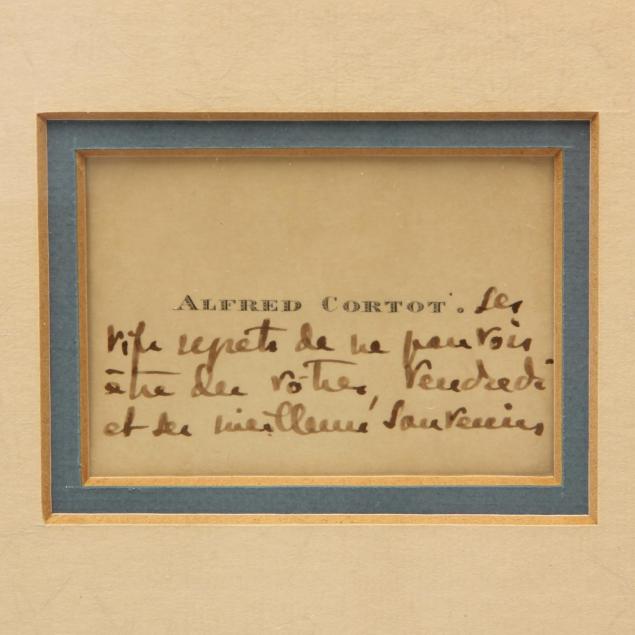 ALFRED CORTOT. Ses
vifs regrets de ne pouvoir
être des vôtres, vendredi
et ses meilleurs souvenirs